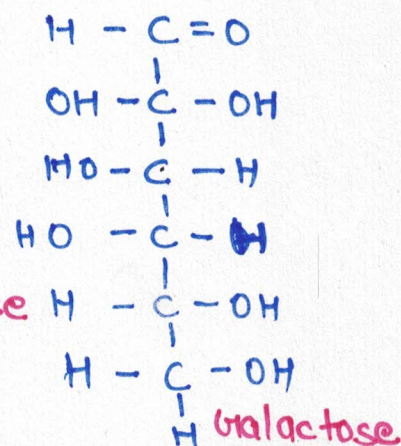 H - C = O
OH - C - OH
HO - C - H
HO - C - H
H - C - OH
H - C - OH
H
Galactose